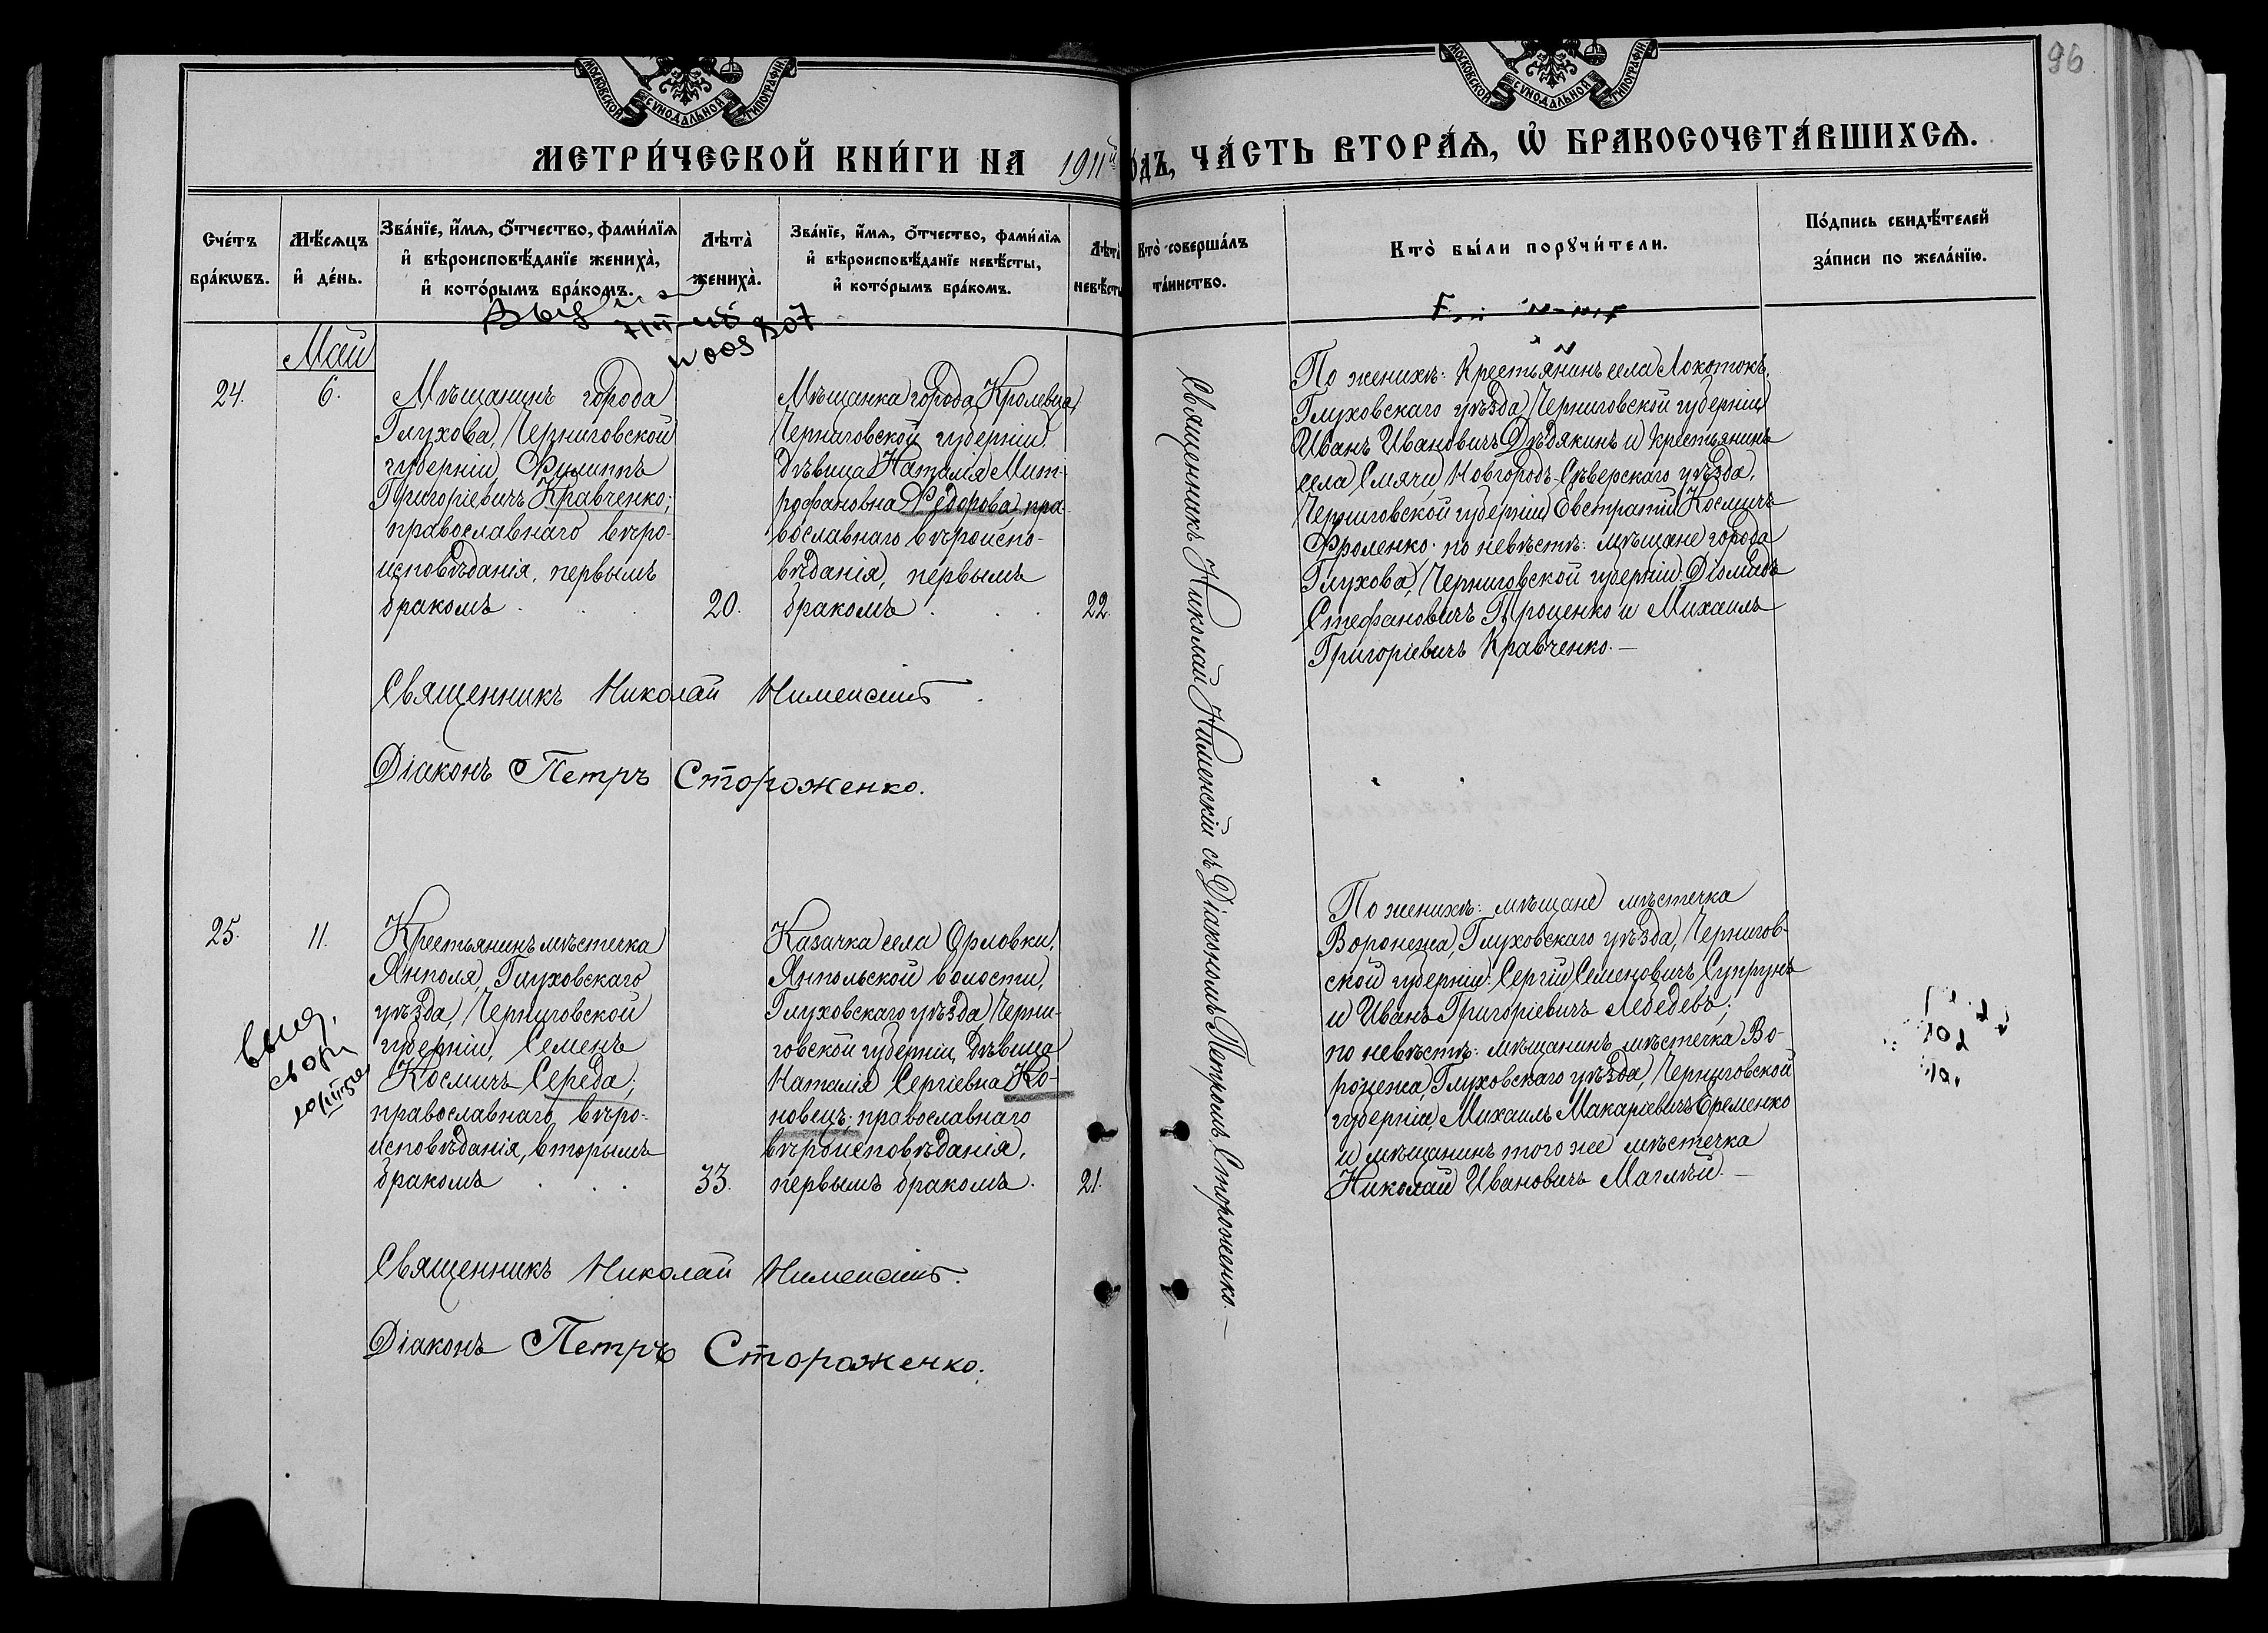 МОСКОВСКОЙ СѴНОДАЛЬНОЙ ТИПОГРАФІИ
МОСКОВСКОЙ СѴНОДАЛЬНОЙ ТИПОГРАФІИ
96
МЕТРИ́ЧЕСКОЙ КНИ́ГИ НА 1911й
ОДЪ, ЧА́СТЬ ВТОРА́Ѧ, Ѡ҆ БРАКОСОЧЕТА́ВШИХСѦ.
Сче́тъ
бра́кѡвъ.
Мѣ́сѧцъ
и҆ де́нь.
Зва́нїе, и҆́мѧ, ѻ҆́тчество, фами́лїѧ
и҆ вѣроисповѣ́данїе жениха̀,
и҆ кото́рымъ бра́комъ.
Лѣта̀
жениха̀.
Зва́нїе, и҆́мѧ, ѻ҆́тчество, фами́лїѧ
и҆ вѣроисповѣ́данїе невѣ́сты,
и҆ кото́рымъ бра́комъ.
Лѣта̀
невѣ́сты
Кто̀ соверша́лъ
та́инство.
Кто̀ бы́ли порꙋчи́тели.
По́дпись свидѣ́телей
за́писи по жела́нїю.
Май
24.
6.
Мѣщанинъ города
Глухова, Черниговской
губерніи, Филиппъ
Григоріевичъ Кравченко;
православнаго вѣро-
исповѣданія, первымъ
бракомъ . . .
20.
Мѣщанка города Кролевца,
Черниговской губерніи,
дѣвица Наталія Мит-
рофановна Ѳедорова, пра-
вославнаго вѣроиспо-
вѣданія, первымъ
бракомъ . .
22.
Священникъ Николай Нименскій съ Діакономъ Петромъ Стороженко.—
По женихѣ: Крестьянинъ села Локотокъ,
Глуховскаго уѣзда, Черниговской губерніи
Иванъ Ивановичъ Дѣдякинъ и крестьянинъ
села Смячи, Новгородъ-Сѣверскаго уѣзда,
Черниговской губерніи, Евстратій Космичъ
Фроленко. по невѣстѣ: мѣщане города
Глухова, Черниговской губерніи: Діомидъ
Стефановичъ Проценко и Михаилъ
Григоріевичъ Кравченко.—
Священникъ Николай Нименскій.
Діаконъ Петръ Стороженко.
25.
11.
Крестьянинъ мѣстечка
Янполя, Глуховскаго
уѣзда, Черниговской
губерніи, Семенъ
Космичъ Середа;
православнаго вѣро-
исповѣданія, вторымъ
бракомъ . . .
33.
Казачка села Орловки,
Янпольской волости,
Глуховскаго уѣзда, Черни-
говской губерніи, дѣвица
Наталія Сергіевна Ко-
новецъ; православнаго
вѣроисповѣданія,
первымъ бракомъ.
21.
По женихѣ: мѣщане мѣстечка
Воронежа, Глуховскаго уѣзда, Чернигов-
ской губерніи: Сергій Семеновичъ Супрунъ
и Иванъ Григоріевичъ Лебедевъ;
по невѣстѣ: мѣщанинъ мѣстечка Во-
ронежа, Глуховскаго уѣзда, Черниговской
губерніи, Михаилъ Макаріевичъ Еременко
и мѣщанинъ того же мѣстечка
Николай Ивановичъ Маглѣй.—
Священникъ Николай Нименскій.
Діаконъ Петръ Стороженко.